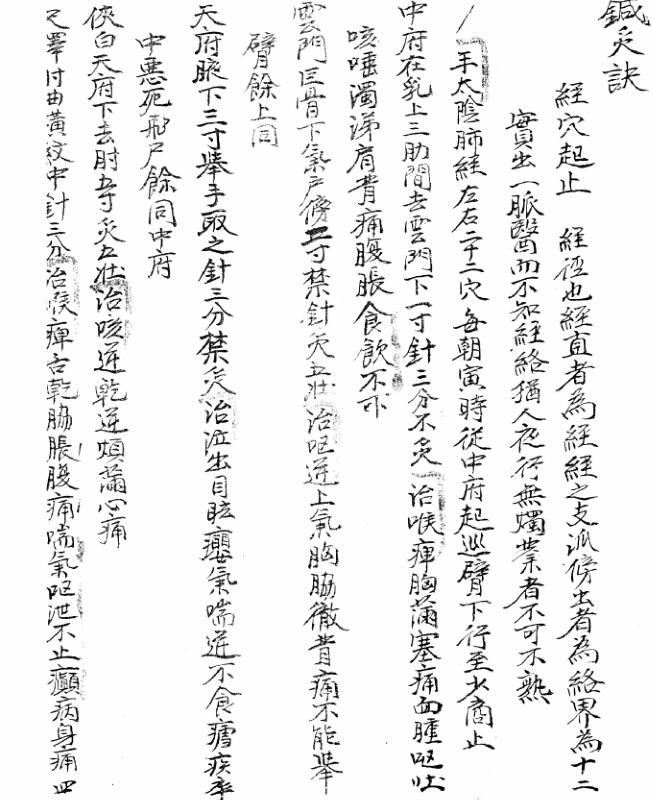 鍼灸訣
經穴起止　經徑也經直者為經經之支派傍出者為絡界為十二
實出一脈醫而不知經絡猶人夜行無燭業者不可不熟
手太陰肺經左右二十二穴每朝寅時從中府起巡臂下行至少商止
中府在乳上三肋間去雲門下一寸針三分不灸治喉痺胸滿塞痛面腫嘔吐
咳唾濁涕肩背痛腹脹食飲不下
雲門巨骨下氣戶傍二寸禁針灸五壯治嘔逆上氣胸脇徹背痛不能舉
臂餘上同
天府腋下三寸舉手取之針三分禁灸治泣出目眩癭氣喘逆不食瘧疾卒
中惡死飛尸餘同中府
俠白天府下去肘五寸灸五壯治咳逆乾逆煩滿心痛
尺澤肘曲黃紋中針三分治喉痺舌乾脇脹腹痛喘氣嘔泄不止癲病身痛四